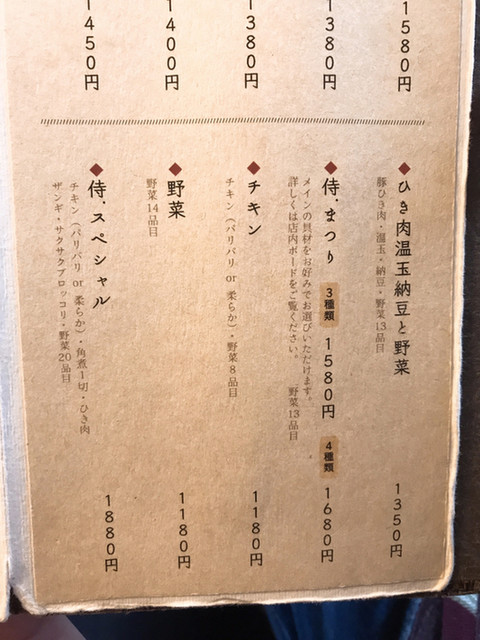 1580円
1380円
1380円
1400円
1450円
ひき肉温玉納豆と野菜 1350円
豚ひき肉・温玉・納豆・野菜13品目
侍.まつり 3種類 1580円 4種類 1680円
メインの具材をお好みでお選びいただけます。
詳しくは店内ボードをご覧ください。 野菜13品目
チキン 1180円
チキン（パリパリ or 柔らか）・野菜8品目
野菜 1180円
野菜14品目
侍.スペシャル 1880円
チキン（パリパリ or 柔らか）・角煮1切・ひき肉
ザンギ・サクサクブロッコリ・野菜20品目